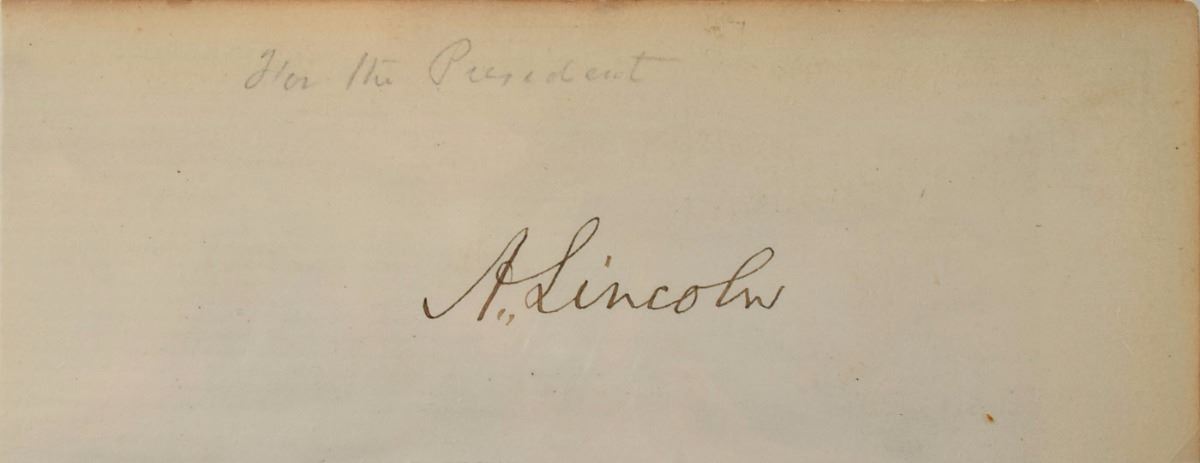 For the President
A. Lincoln